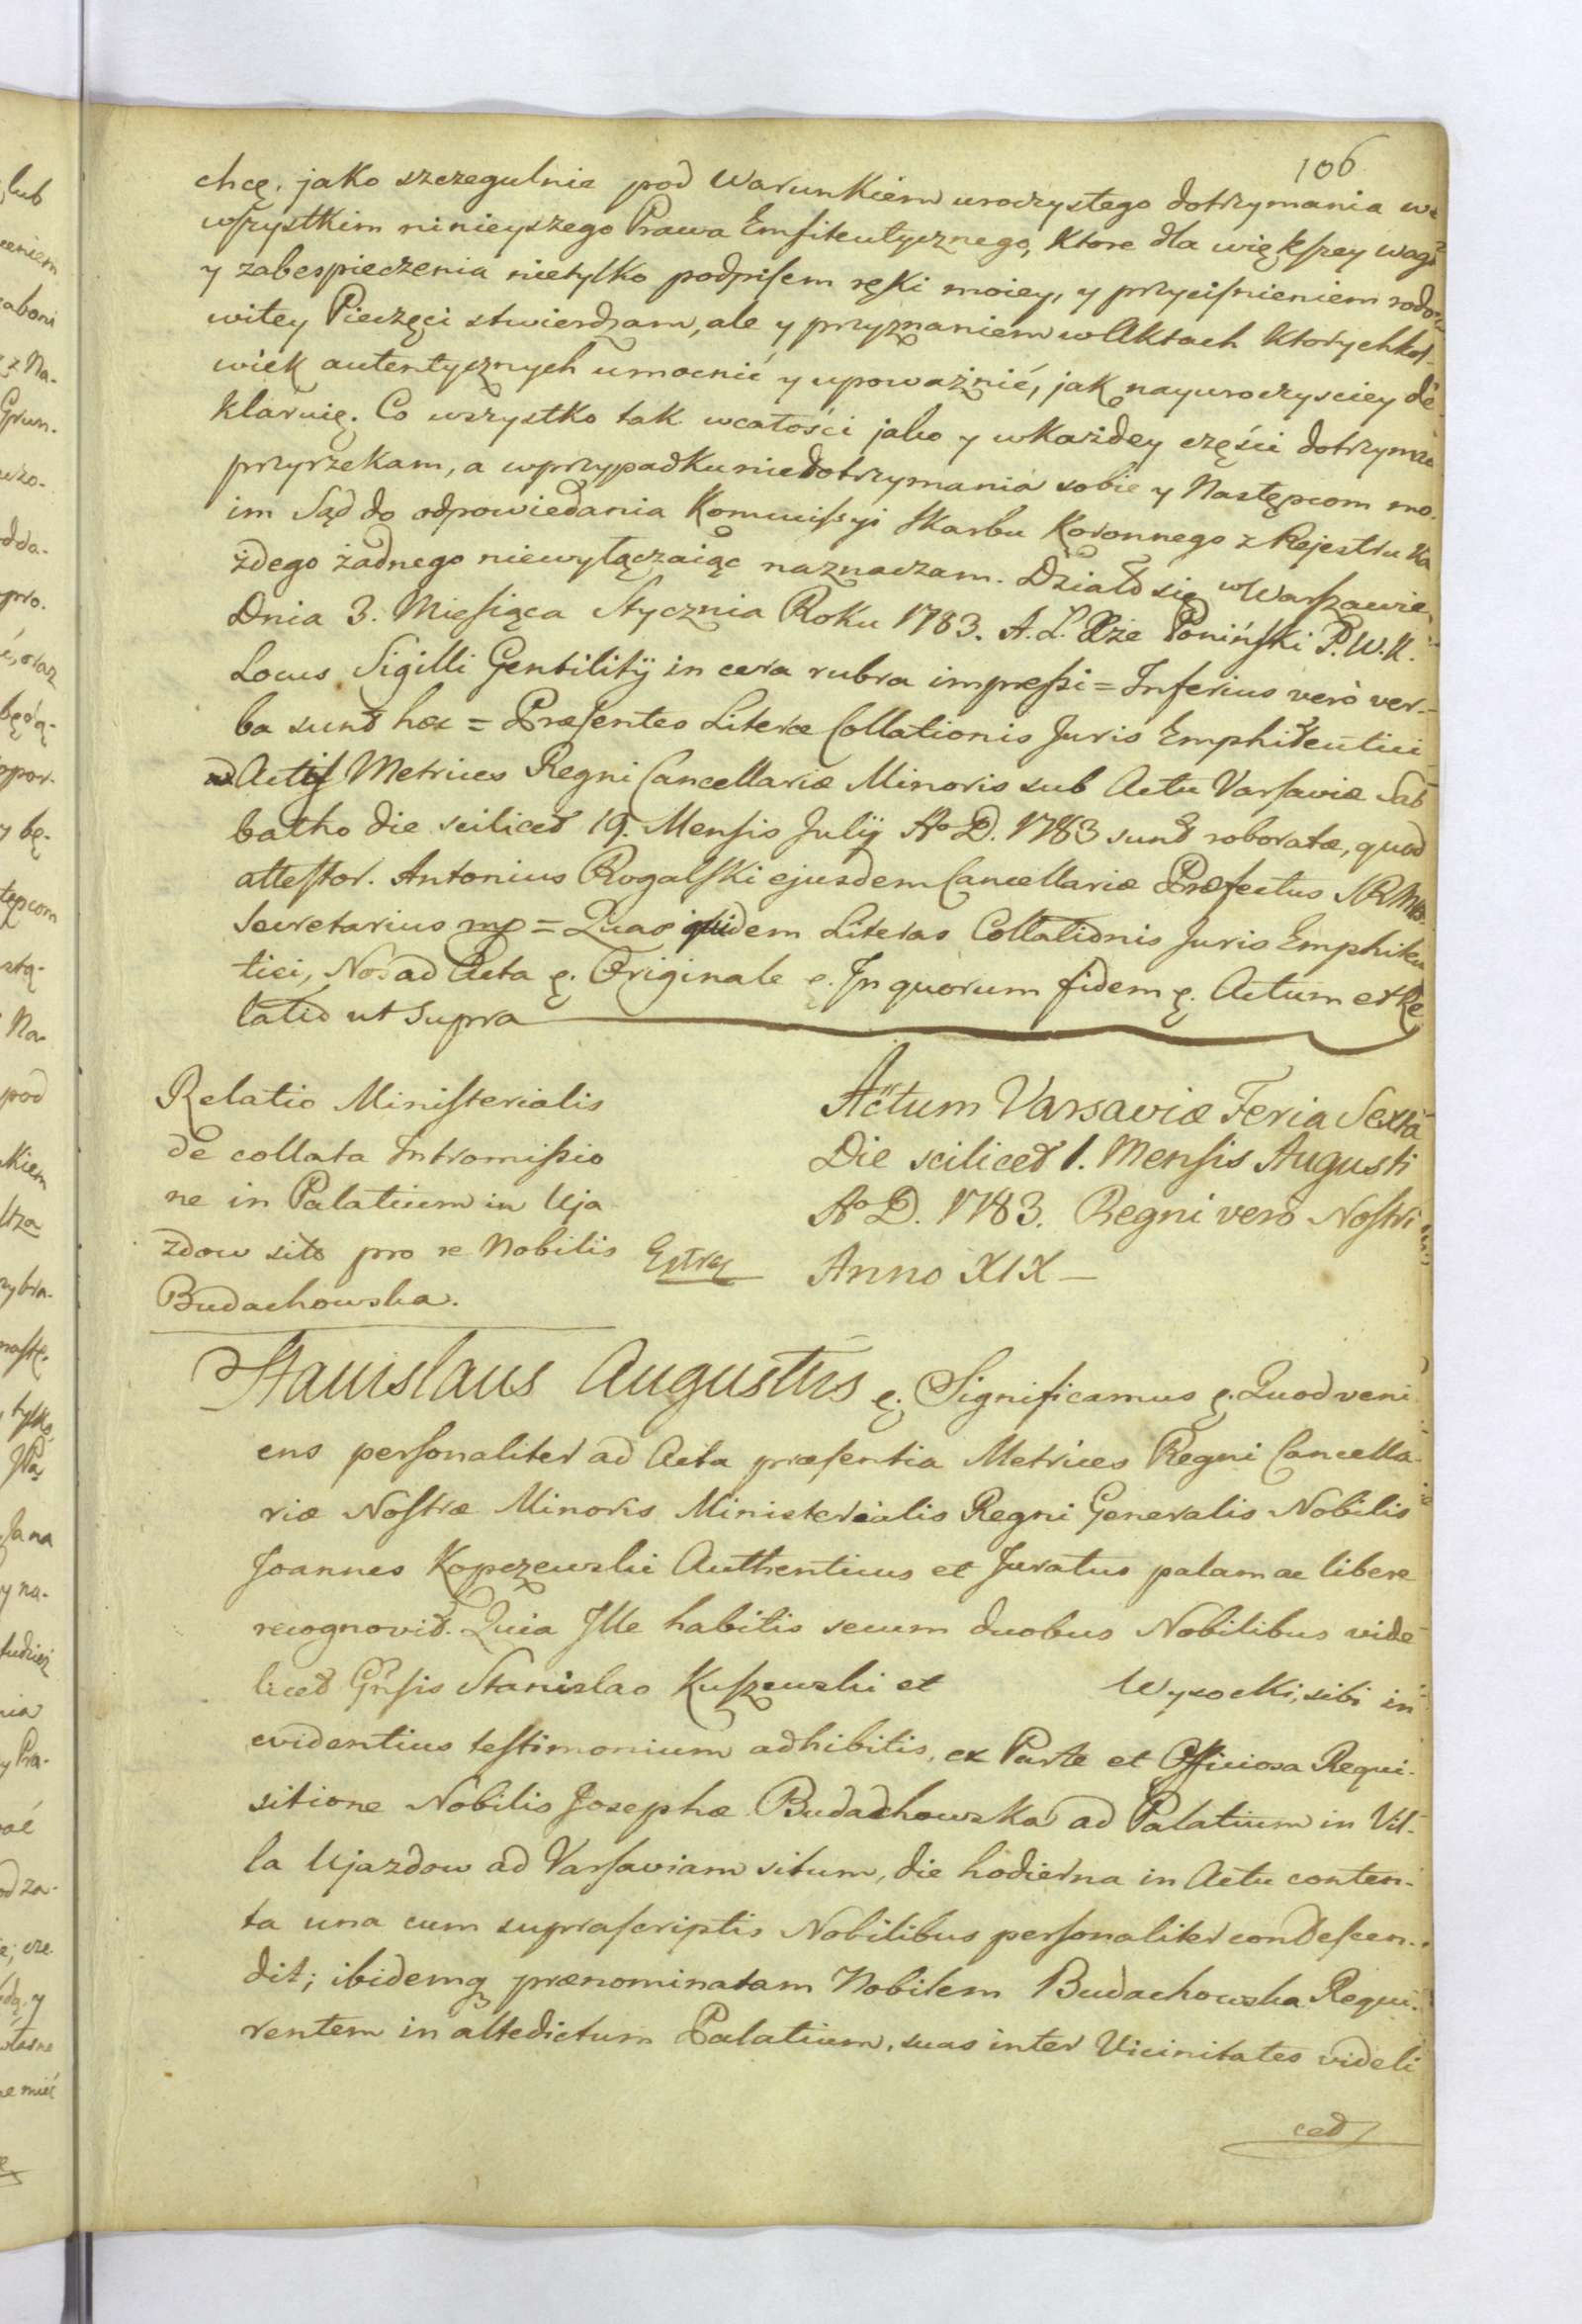 106
chcę, jako szczegulnie pod Warunkiem uroczystego dotrzymania we
wszystkim ninieyszego Prawa Emfiteutycznego, ktore dla większey wagi
y zabespieczenia nietylko podpisem ręki moiey, y przyciśnieniem rodo
witey Pieczęci stwierdzam, ale y przyznaniem w Aktach ktorychkol-
wiek autentycznych umocnić y upoważnić, jak nayuroczysciey de
klaruię. Co wszystko tak wcałości jako y wKażdey części dotrzymać
przyrzekam, a wprzypadku niedotrzymania sobie y Następcom mo-
im Sąd do odpowiedania Kommissyi Skarbu Koronnego z Rejestru Ka
żdego żadnego niewyłączaiąc naznaczam. Działo się w Warszawie
Dnia 3. Miesiąca Stycznia Roku 1783. A. L. Xże Poniński P. W. K.
Locus Sigilli Gentilitÿ in cera rubra impressi = Inferius verò ver-
ba sunt hæc = Præsentes Literæ Collationis Juris Emphiteutici
ad Acta Metrices Regni Cancellariæ Minoris sub Actu Varsaviæ Sab
batho die scilicet 19. Mensis Julÿ Ao D. 1783 sunt roboratæ, quod
attestor. Antonius Rogalski ejusdem Cancellariæ Præfectus SRMtis
Secretarius mp = Quas quidem Literas Collationis Juris Emphiteu
tici, Nos ad Acta &. Originale &. In quorum fidem &. Actum et Re
latio ut supra
Relatio Ministerialis
de collata Intromissio
ne in Palatium in Uja
zdow sito pro re Nobilis
Budachowska.
Extra
Actum Varsaviæ Feria Sexta
Die scilicet 1. Mensis Augusti
Ao D. 1783. Regni vero Nostri
Anno XIX
Stanislaus Augustus &. Significamus &. Quod veni
ens personaliter ad Acta præsentia Metrices Regni Cancella-
riæ Nostræ Minoris Ministerialis Regni Generalis Nobilis
Joannes Kopczewski Authenticus et Juratus palam ac libere
recognovit. Quia Ille habitis secum duobus Nobilibus vide
licet Gnsis Stanislao Kuszewski et Wysocki, sibi in
evidentius testimonium adhibitis, ex Parte et Officiosa Requi-
sitione Nobilis Josephæ Budachowska ad Palatium in Vil-
la Ujazdow ad Varsaviam situm, die hodierna in Actu conten-
ta una cum suprascriptis Nobilibus personaliter condescen-
dit; ibidemq prænominatam Nobilem Budachowska Requi-
rentem in altedictum Palatium, suas inter Vicinitates videli
cet